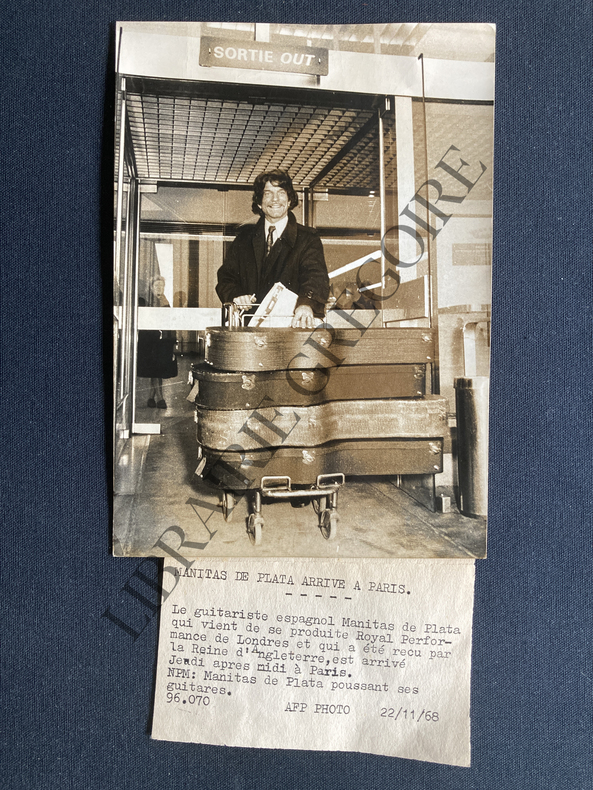 SORTIE OUT
LIBRAIRIE GREGOIRE
MANITAS DE PLATA ARRIVE A PARIS.
- - - - -
Le guitariste espagnol Manitas de Plata
qui vient de se produite Royal Perfor-
mance de Londres et qui a été recu par
la Reine d'Angleterre,est arrivé
Jeudi apres midi à Paris.
NPM: Manitas de Plata poussant ses
guitares.
96.070 AFP PHOTO 22/11/68